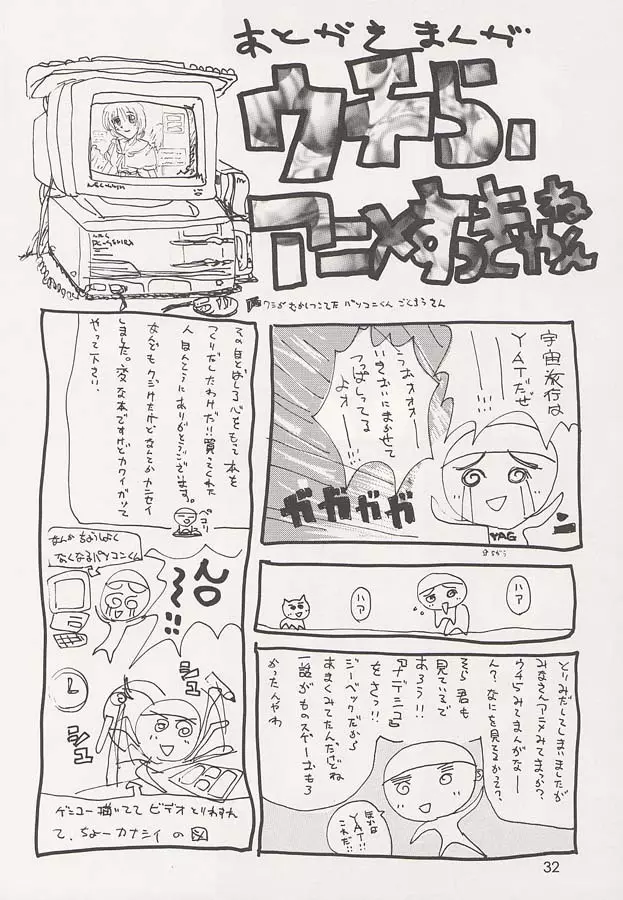 あとがきまんが
ウチら、
アニメすっきゃねん
ワシがむかしつこてた パソコンくん ごくろうさん
宇宙旅行は
YATだぜ
!!!
うおォォォ——
いきおいにまかせて
つっぱしってる
よォ——
ガガガガ
YAG
ハア
ハア
とりみだしてしまいましたが
みなさんアニメみてまっか?
ウチらみてまんがなー
ん?なにを見てるかって?
そら君も
見ているで
あろう!!
ナデシコ
をさっ!!
ジーベックだから
あまくみてたんだけどね
一話がものスゲーおもろ
かったんやわ
ほかは
YAT!!
これだ!!
その目とばしろ心をもって本を
つくりだしたわけだ!!買ってくれた
人ほんとうにありがとうございます。
なんどもクジけたけどなんとかカンセイ
しました。変な本ですけどカワイがって
やって下さい。
ペコリ
なんか ちょうしよく
なくなるパソコンくん
シュ
シュ
ゲンコー描いてて ビデオとりわすれ
て、ちょーカナシイ の図
32